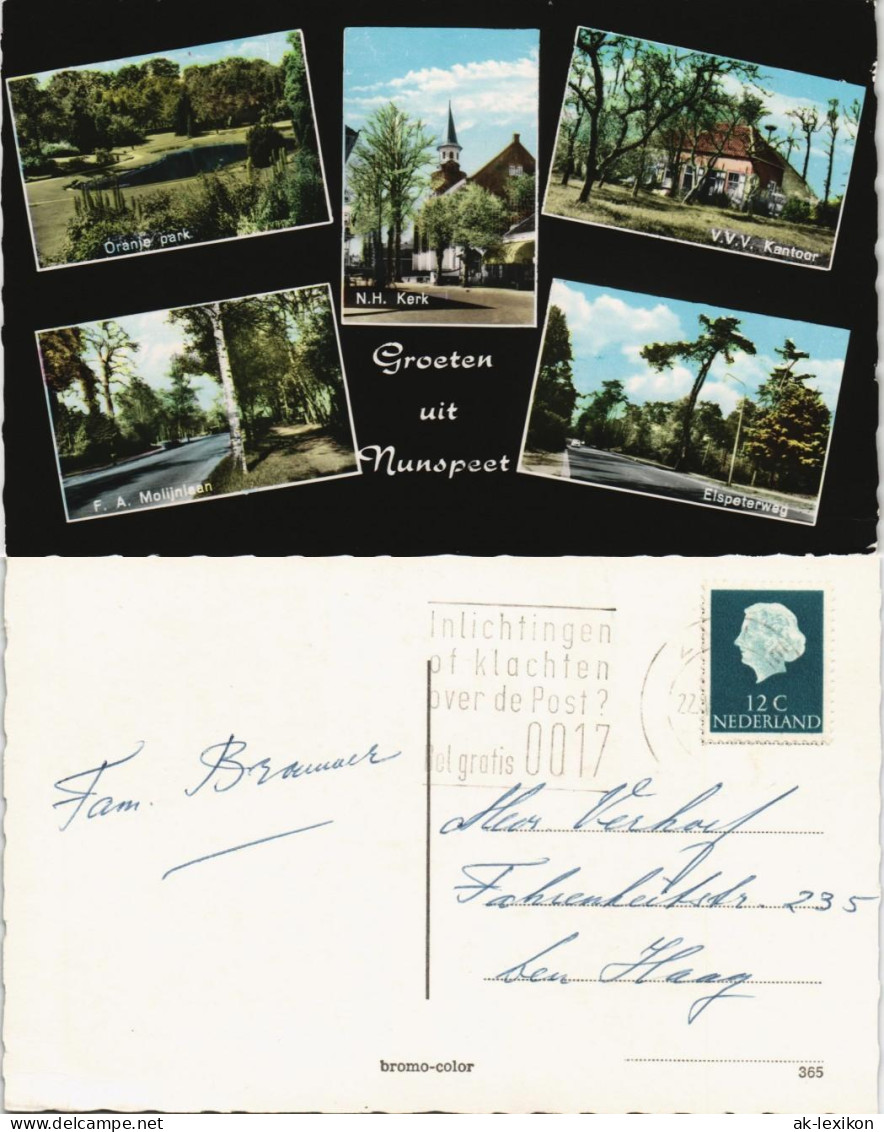 Oranje park
N.H. Kerk
V.V.V. Kantoor
F. A. Molijnlaan
Groeten
uit
Nunspeet
Elspeterweg
Inlichtingen
of klachten
over de Post?
Bel gratis 0017
22
12 C
NEDERLAND
Fam.
Heer Verhoef
Fahrenheitstr. 235
den Haag
bromo-color
365
ak-lexikon.com